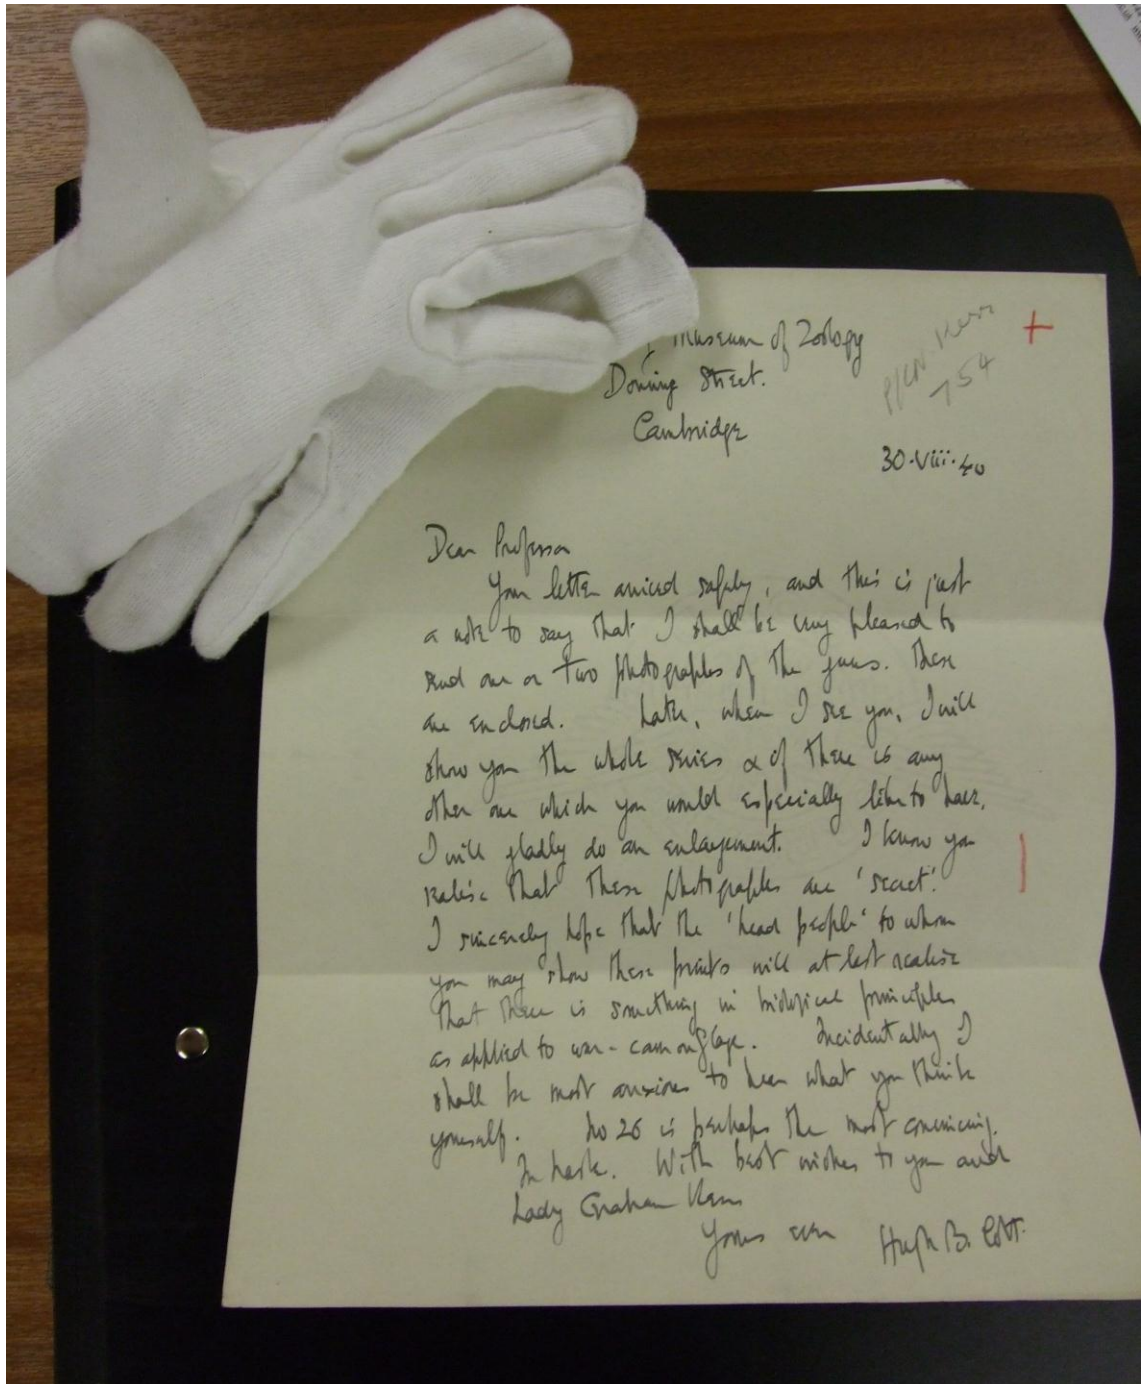 Museum of Zoology
Downing Street.
Cambridge
30·viii·40
Dear Professor
Your letter arrived safely, and this is just
a note to say that I shall be very pleased to
send one or two photographs of the guns. These
are enclosed. Later, when I see you, I will
show you the whole series & if there is any
other one which you would especially like to have,
I will gladly do an enlargement. I know you
realise that these photographs are 'secret'.
I sincerely hope that the 'head people' to whom
you may show these prints will at last realise
that there is something in biological principles
as applied to war-camouflage. Incidentally I
shall be most anxious to hear what you think
yourself. No 26 is perhaps the most convincing.
In haste. With best wishes to you and
Lady Graham Kerr
Yours ever Hugh B. Cott.